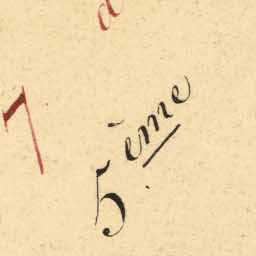 7
5.ème